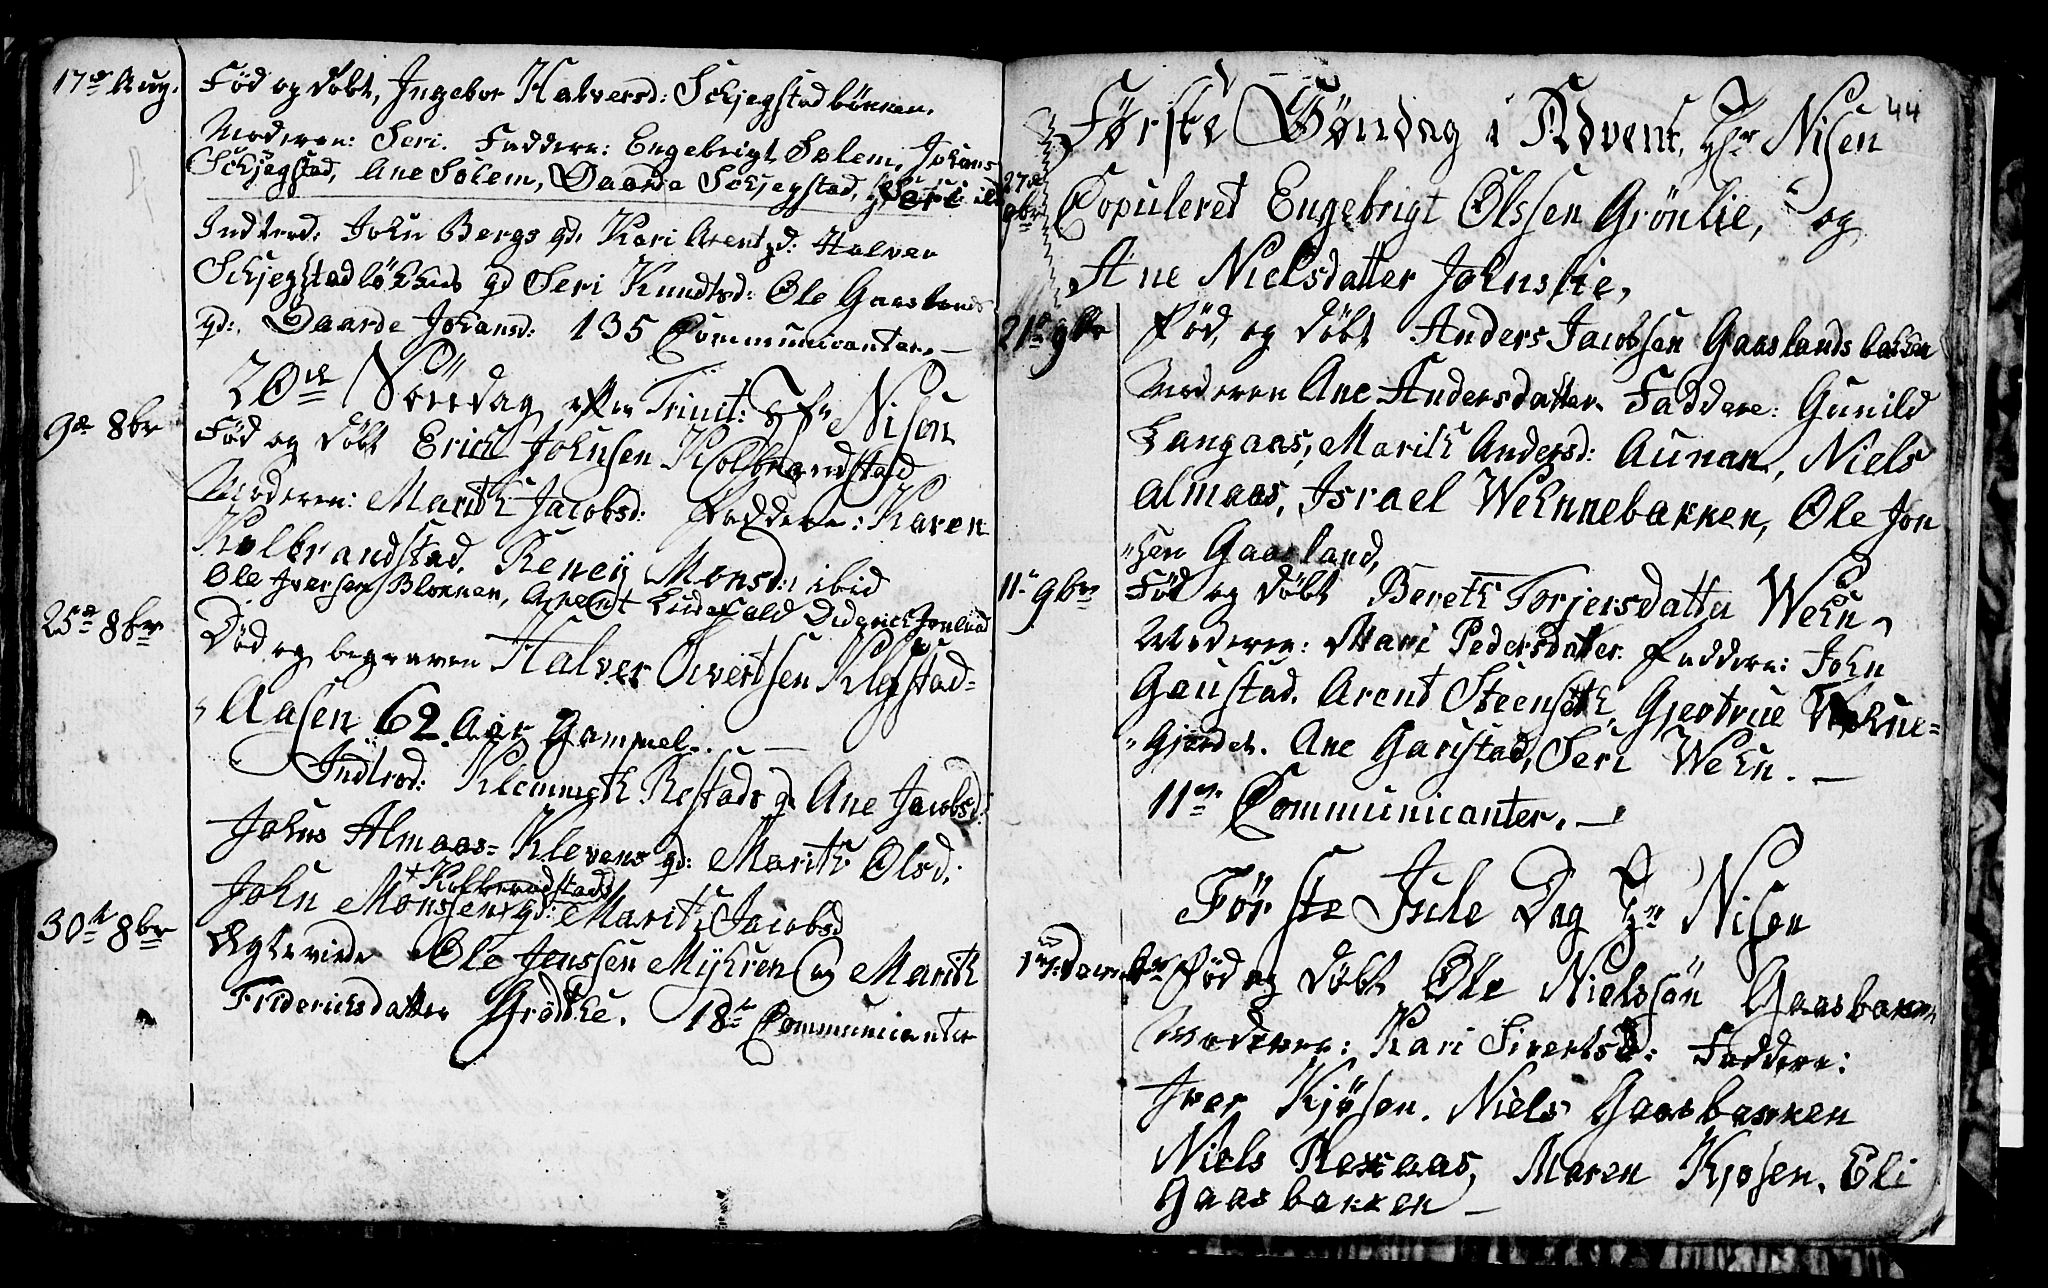 17de Aug. Fød og døbt, Ingebor Halversd: Schjegstadbönnen.
Moderen: Seri. Faddere: Engebrigt Solem, Johans
Schjegstad, Ane Solem, Daarde Schjegstad,
Indtrod. John Bergs qd. Kari Arentzd: Halver
Schjegstadløkkens qd Seri Knudtsd: Ole Gaaslands
qd: Daarde Johansd: 135 Communicanter. —
20de Søndag efter Trinit: Hr Nisen
9de 8br Fød og døbt Erich Johnsen Kolbrandstad
Moderen: Marith Jacobsd: Faddere: Karen
Kolbrandstad, Reney Monsd: ibid
Ole Iversen Blokken, Arent Lindefald Diderich
25de 8br Død og begraven Halver Sivertsen Klefstad-
Aasen 62. Aar Gammel. —
Indtrod: Klemmeth Refstads qd Ane Jacobsd:
Johns Almaas- Klevens qd: Marith Olsd:
+ Kolbrandstads
John Monssens qd: Marith Jacobsd
30te 8br Ægteviede Ole Jenssen Myhren og Marith
Friderichsdatter Grøtthe. 18de Communicanter
44
Første Søndag i Advent, Hr Nisen
27de 9br Copuleret Engebrigt Olssen Grönlie, og
Ane Nielsdatter Johnslie,
21de 9br Fød, og døbt Anders Jacobsen Gaaslandsbakken
Moderen Ane Andersdatter. Faddere: Gunild
Langaas, Marith Andersd: Aunan, Niels
Almaas, Israel Wehnnebakken, Ole Jon
"sen Gaasland,
11te 9br Fød og døbt Bereth Torjersdatter Wehn,
Moderen: Mari Pedersdatter. Faddere: John
Gaustad. Arent Steenseth, Gjertrue Wehne=
"Gjerdet. Ane Gaustad, Seri Wehn. —
11ve Communicanter. —
Første Jule Dag Hr Nisen
Fød og døbt Ole Nielssön Gaasbaken
Moderen: Kari Sivertsd: Faddere:
Iver Kjøsen. Niels Gaasbakken
Niels Rexaas, Maren Kjøsen. Eli
Gaasbakken —